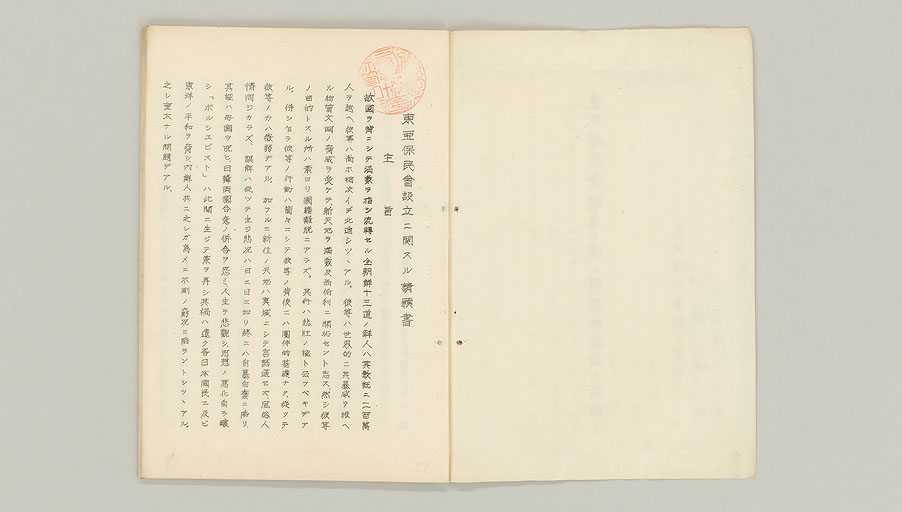 東亜保民會設立ニ関スル請願書
主旨
故國ヲ背ニシテ満蒙ヲ指シ流轉セル全朝鮮十三道ノ鮮人ハ其数既ニ二百萬
人ヲ越ヘ彼等ハ尚ホ相次イデ北進シツヽアル。彼等ハ世界的ニ其暴威ヲ振ヘ
ル物質文明ノ脅威ヲ受ケテ新天地ヲ満蒙及西伯利ニ開拓セント志ス、然シ彼等
ノ目的トスル所ハ素ヨリ國籍離脱ニアラズ。其行ハ悲壮ノ極ト云フベキデア
ル、併シ乍ラ彼等ノ行動ハ箇々ニシテ彼等ノ背後ニハ團体的基礎ナク、従ツテ
彼等ノ力ハ微弱デアル。加フルニ新住ノ天地ハ異域ニシテ言語通セズ、風俗人
情同ジカラズ、誤解ハ従ツテ生ジ悲況ハ日ニ日ニ加リ終ニハ自暴自棄ニ陥リ
其極ハ母國ヲ呪ヒ日韓両國合意ノ併合ヲ怨ミ人生ヲ悲觀シ思想ノ悪化自ラ釀
シ「ボルシエビスト」ハ此間ニ生ジテ累ヲ再シ其禍ハ遠ク吾日本國民ニ及ビ
東洋ノ平和ヲ脅シ内鮮人共ニ之レガ為メニ不測ノ窮況ニ陥ラントシツヽアル。
之レ重大ナル問題デアル。